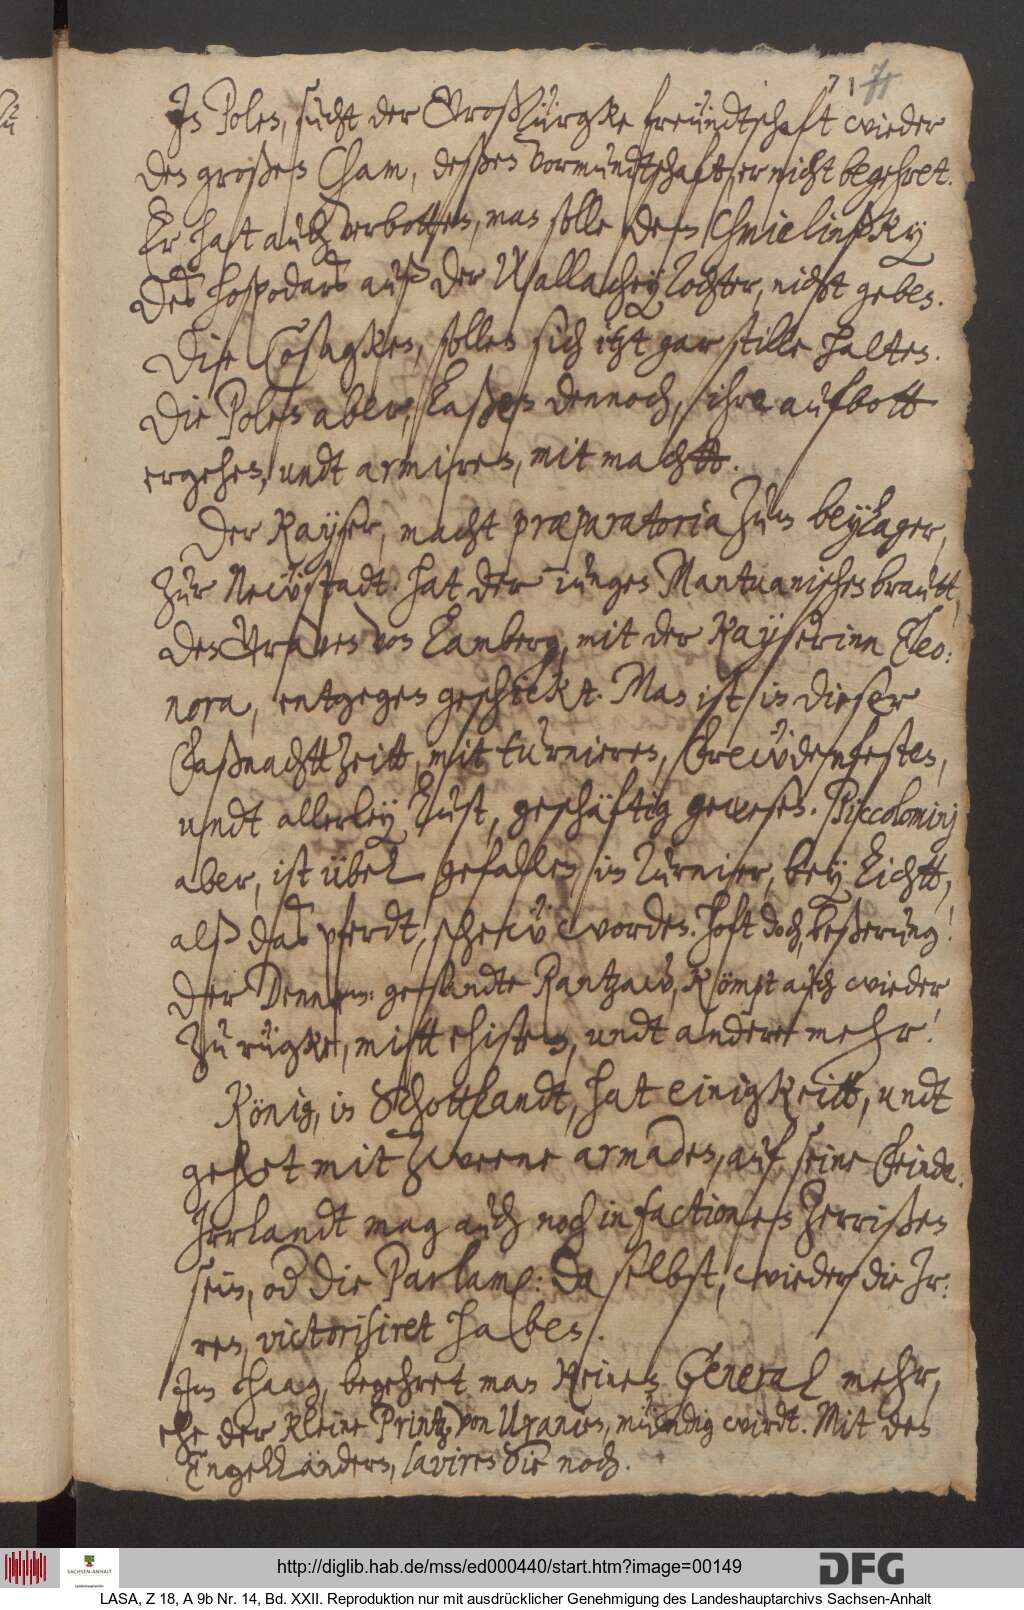 71 71
In Polen, sucht der GroßTürgke freündtschaft wieder
den großen Cham, deßen vormundtschaft, er nicht begehret.
Er hat auch verbotten, man solle dem Chmielinsky
des hospodars auß der Wallachey Tochter, nicht geben.
Die Cosagken, sollen sich itzt gar stille halten.
Die Polen aber, laßen dennoch, ihre aufbott
ergehen, undt armiren, mit machtt.
Der Kayser, macht præparatoria zum beylager,
zur Newstadt. hat der iungen Mantuanischen brautt,
den Graven von Lamberg, mit der Kayserinn Eleo:
nora, entgegen geschickt. Man ist in dieser
Faßnachtt Zeitt, mit turnieren, Frewdenfesten,
undt allerley Lust, geschäftig gewesen. Piccolominj
aber, ist übel gefallen in Turnier, bey Lichtt,
alß das pferdt, schew worden. hoft doch, beßerung!
Der Dennem: gesandte Rantzaw, kömpt auch wieder
zu rügke, mitt ehisten, undt andere mehr!
König, in Schottlandt, hat einigkeitt, undt
gehet mit zweene armaden, auf seine Feinde.
Irrlandt mag auch noch in factionen zerrißen
sein, od die Parlam: da selbst, wieder die Ir:
ren, victorisiret haben.
Im Haag, begehret man keinen General mehr,
ehe der kleine Printz von Uranien, mündig wirdt. Mit den
Engelländern, laviren Sie noch.
SACHSEN-ANHALT
http://diglib.hab.de/mss/ed000440/start.htm?image=00149
DFG
LASA, Z 18, A 9b Nr. 14, Bd. XXII. Reproduktion nur mit ausdrücklicher Genehmigung des Landeshauptarchivs Sachsen-Anhalt